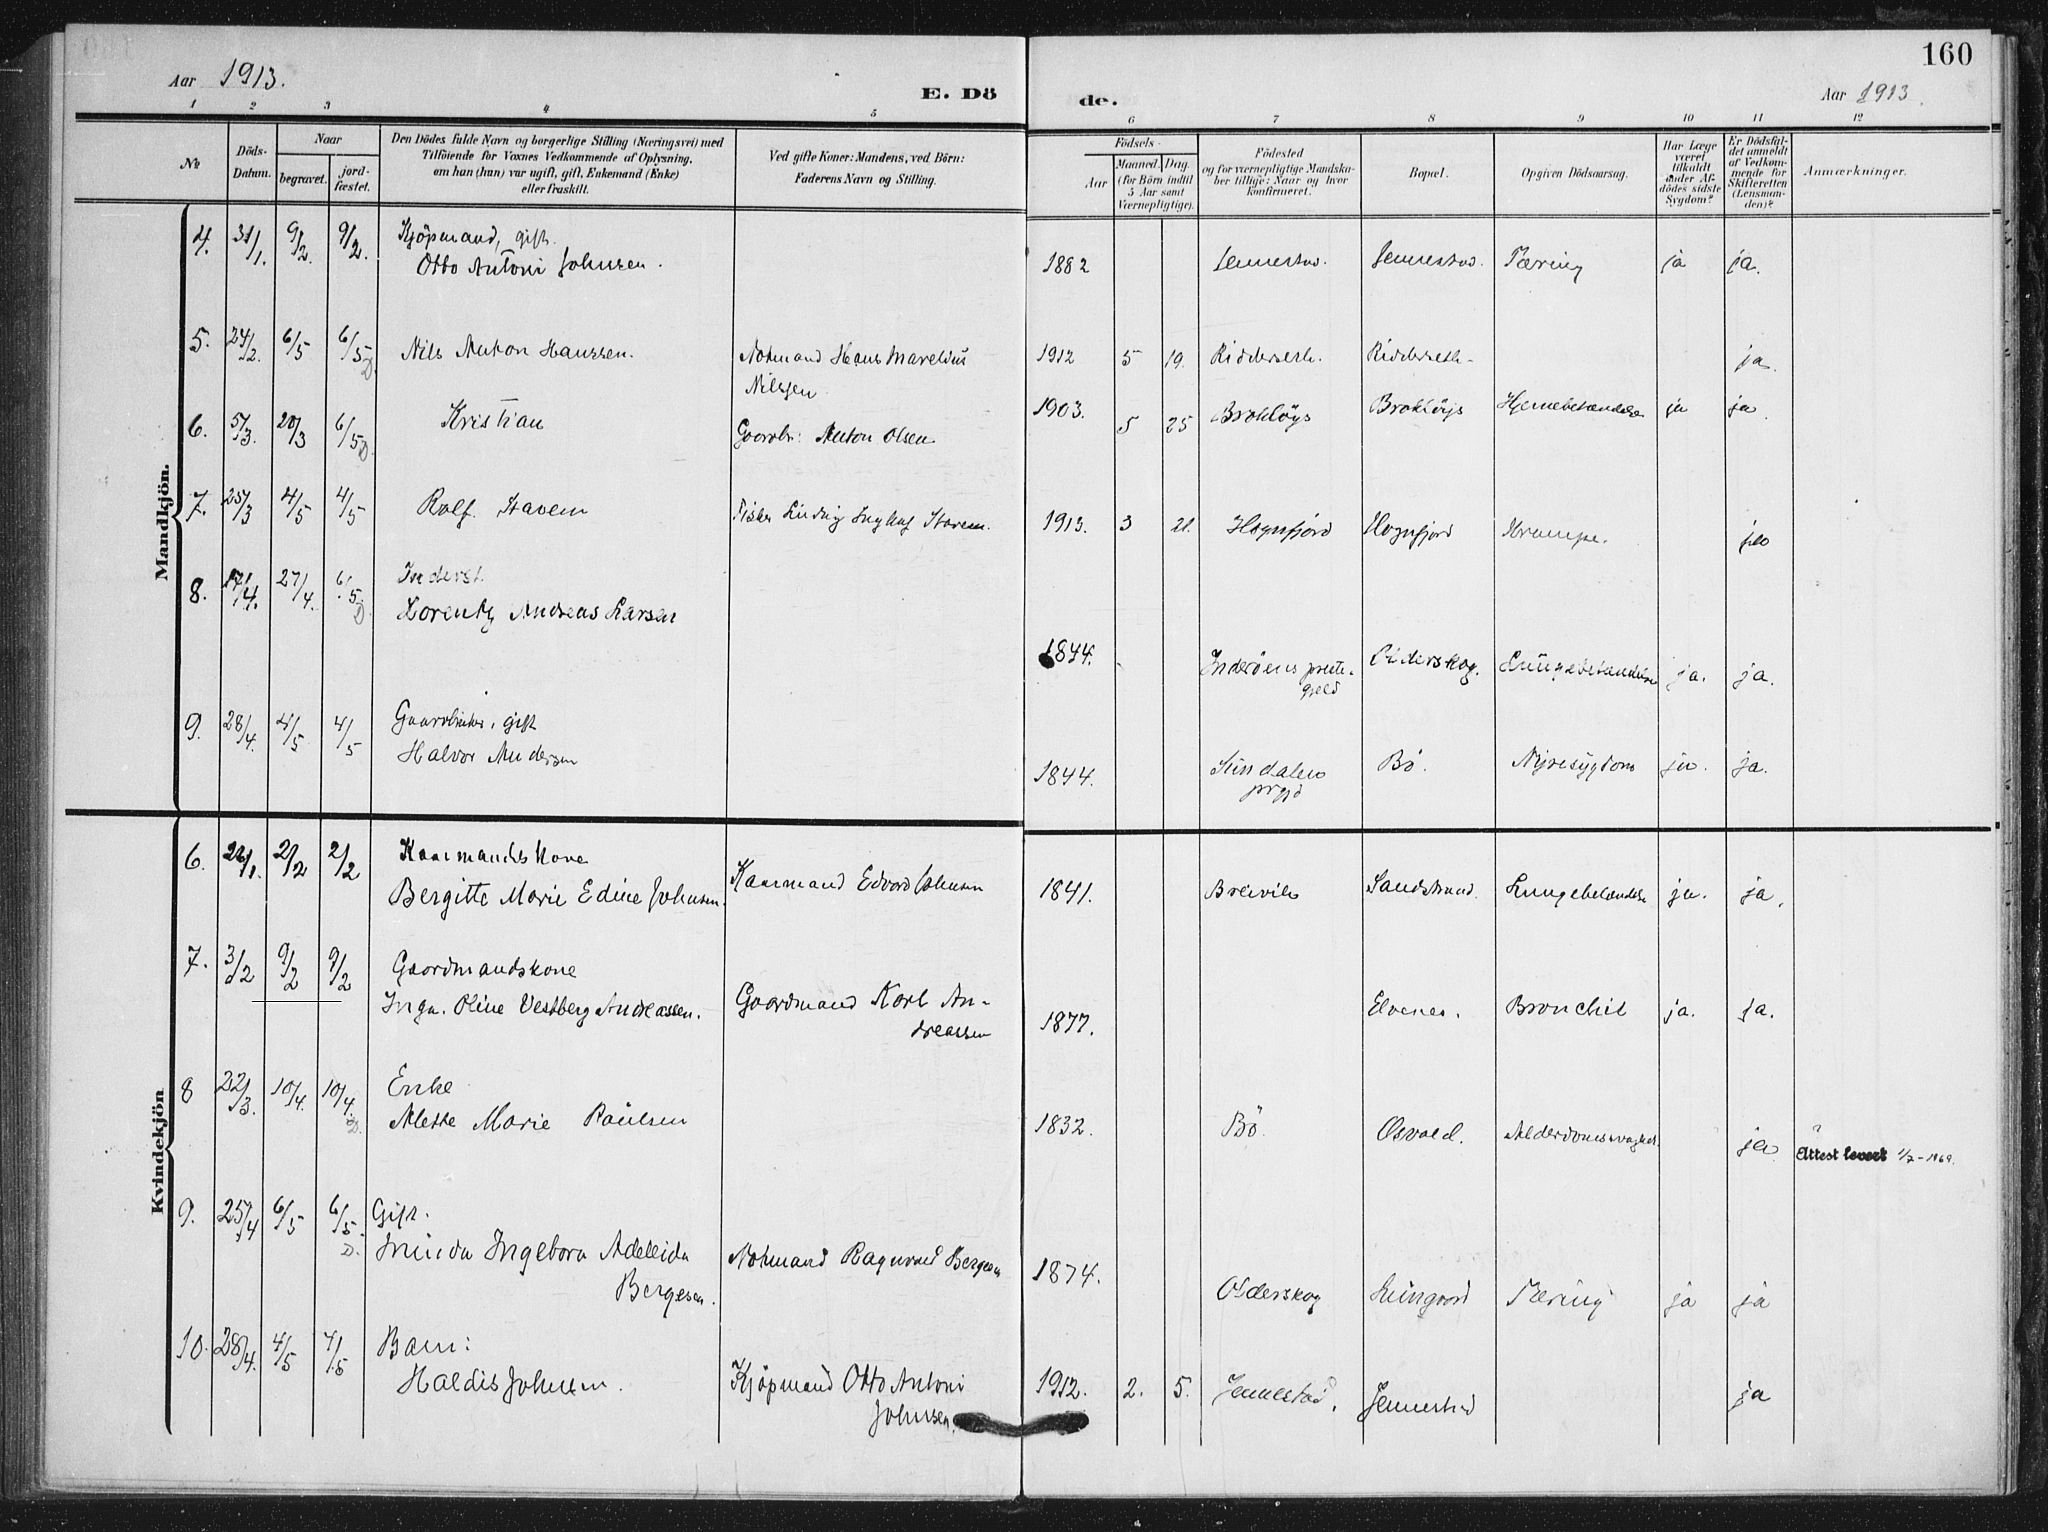 160
Aar 1913. E. Dö de. Aar 1913.
1 2 3 4 5 6 7 8 9 10 11 12
No
Döds-Datum.
Naar
begravet.
jord-fæstet.
Den Dödes fulde Navn og borgerlige Stilling (Næringsvei) med
Tilföiende for Voxnes Vedkommende af Oplysning,
om han (hun) var ugift, gift, Enkemand (Enke)
eller fraskilt.
Ved gifte Koner: Mandens, ved Börn:
Faderens Navn og Stilling.
Födsels-
Aar
Maaned. Dag.
(for Börn indtil
5 Aar samt
Værnepligtige).
Födested
og for værnepligtige Mandska-
ber tillige: Naar og hvor
konfirmeret.
Bopæl.
Opgiven Dödsaarsag.
Har Læge
været
tilkaldt
under Af-
dödes sidste
Sygdom?
Er Dödsfal-
det anmeldt
af Vedkom-
mende for
Skifteretten
(Lensman-
den)?
Anmærkninger.
Mandkjön.
4. 31/1. 9/2. 9/2. Kjöpmand, gift.
Otto Antoni Johnsen. 1882 Jennestad. Jennestad. Tæring ja ja.
5. 24/2. 6/5 6/5 D. Nils Anton Hanssen. Notmand Hans Marelius
Nilssen 1912 5 19. Ridderseth. Ridderseth. ja.
6. 5/3. 20/3 6/5 D. Kristian Gaardbr: Anton Olsen 1903. 5 25 Brokløys Brokløys Hjernebetændelse ja ja.
7. 25/3 4/5 4/5 Rolf Stavem Fisker Ludvig Stavem. 1913. 3 21. Hognfjord Hognfjord Krampe. ja
8. 17/4. 27/4. 6/5. D Inderst.
Lorentz Andreas Larsen 1844. Inderöens preste-
gjeld Olderskog. Lungebetændelse ja. ja.
9. 28/4. 4/5. 4/5 Gaardbruker, gift
Halvor Andersen 1844. Sundalens
prgjd Bö. Nyresygdom ja. ja.
Kvindekjön
6. 26/1. 2/2 2/2 Kaarmandskone
Bergitte Marie Edine Johnsen. Kaarmand Edvard Johnsen 1841. Breivik Sandstrand. Lungebetændelse ja. ja.
7. 3/2 9/2 9/2 Gaardmandskone
Inga. Oline Vestberg Andreassen. Gaardmand Karl An-
dreassen 1877. Elvenes. Bronchit ja. ja.
8 22/3. 10/4. 10/4. D. Enke
Alette Marie Paulsen 1832. Bö. Osvold. Alderdomssvaghet ja. Attest levert 1/7-1969.
9. 25/4 6/5 6/5. D. Gift.
Ingebora Adeleida
Bergesen. Notmand Ragnvald Bergesen 1874. Olderskog Tæring ja ja
10. 28/4. 4/5 4/5 Barn:
Haldis Johnsen. Kjöpmand Otto Antoni
Johnsen. 1912. 2. 5. Jennestad. Jennestad ja